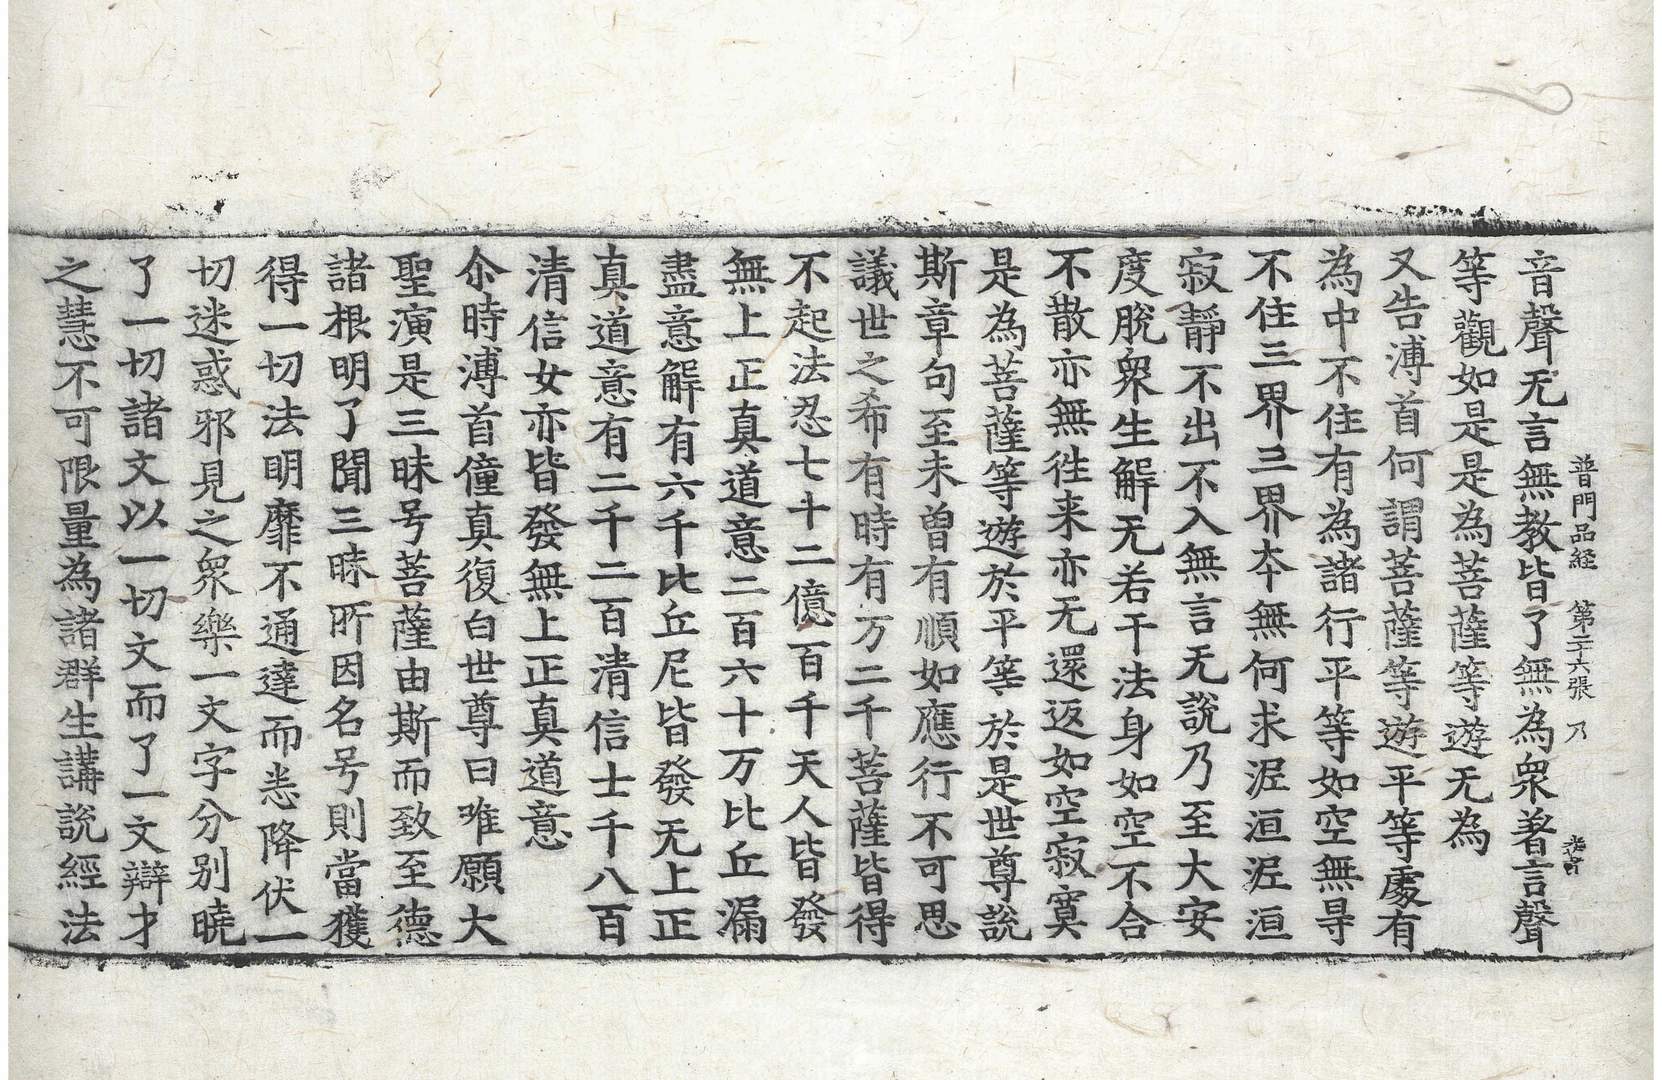 普門品経 第二十六張 乃
音聲无言無教皆了無為衆著言聲
等觀如是是為菩薩等遊无為
又告溥首何謂菩薩等遊平等處有
為中不住有為諸行平等如空無㝵
不住三界三界夲無何求泥洹泥洹
寂靜不出不入無言无說乃至大安
度脫衆生解无若干法身如空不合
不散亦無徃来亦无還返如空寂寞
是為菩薩等遊於平等於是世尊說
斯章句至未曽有順如應行不可思
議世之希有時有万二千菩薩皆得
不起法忍七十二億百千天人皆發
無上正真道意二百六十万比丘漏
盡意解有六千比丘尼皆發无上正
真道意有二千二百清信士千八百
清信女亦皆發無上正真道意
尒時溥首僮真復白世尊曰唯願大
聖演是三昧号菩薩由斯而致至德
諸根明了聞三昧所因名号則當獲
得一切法明靡不通達而悉降伏一
切迷惑邪見之衆樂一文字分別曉
了一切諸文以一切文而了一文辯才
之慧不可限量為諸群生講說經法